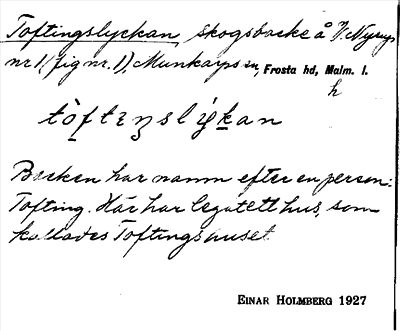 Toftingslyckan skogsbacke å 1/1 Nyryd
nr 1 (fig nr. 1), Munkarps sn, Frosta hd, Malm. l.
h
tòftɪŋslýkan
Backen har namn efter en person:
Tofting. Här har legat ett hus, som
kallades Toftingshuset.
EINAR HOLMBERG 1927